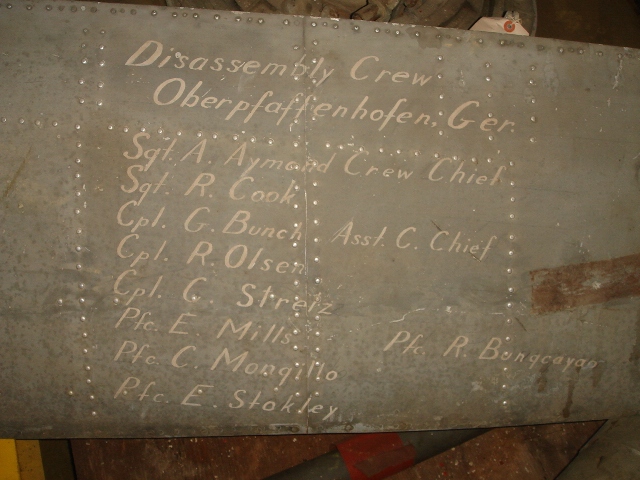 Disassembly Crew
Oberpfaffenhofen, Ger.
Sgt. A. Aymond Crew Chief
Sgt. R. Cook
Cpl. G. Bunch Asst. C. Chief
Cpl. R. Olsen
Cpl. C. Stretz
Pfc. E. Mills
Pfc. C. Mongillo Pfc. R. Bongcayao
Pfc. E. Stokley